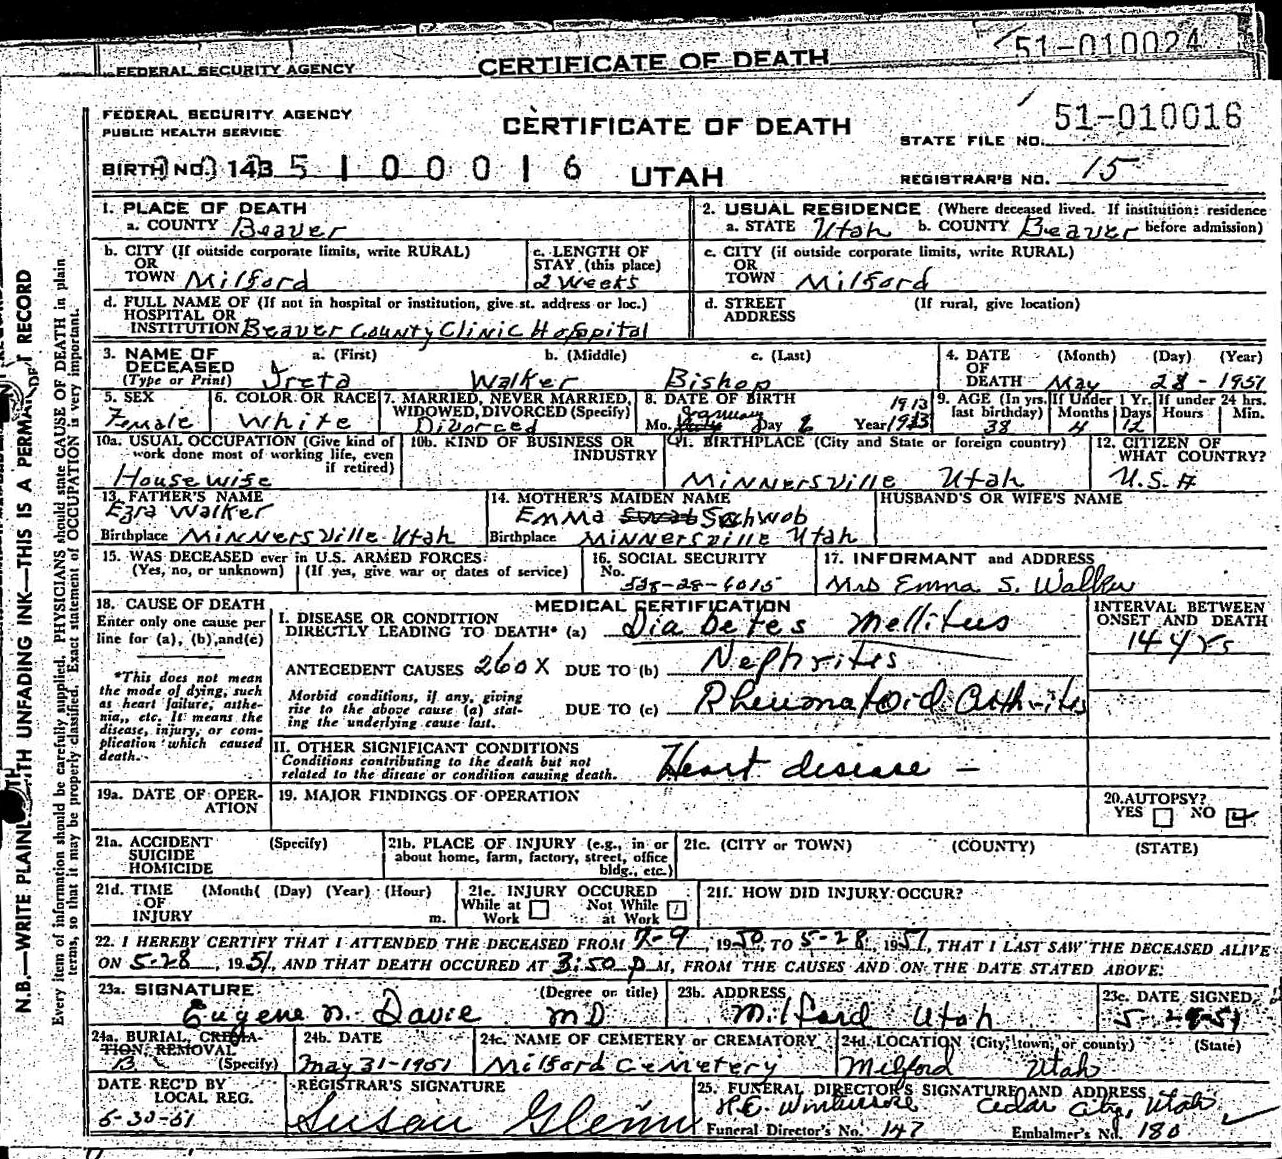 51-010024
FEDERAL SECURITY AGENCY CERTIFICATE OF DEATH
FEDERAL SECURITY AGENCY
PUBLIC HEALTH SERVICE
CERTIFICATE OF DEATH
STATE FILE NO. 51-010016
BIRTH NO. 143 5 1 0 0 0 1 6 UTAH
REGISTRAR'S NO. 15
1. PLACE OF DEATH
a. COUNTY Beaver
2. USUAL RESIDENCE (Where deceased lived. If institution: residence
a. STATE Utah b. COUNTY Beaver before admission)
b. CITY (If outside corporate limits, write RURAL)
OR
TOWN Milford
c. LENGTH OF
STAY (this place)
2 Weeks
c. CITY (if outside corporate limits, write RURAL)
OR
TOWN Milford
d. FULL NAME OF (If not in hospital or institution, give st. address or loc.)
HOSPITAL OR
INSTITUTION Beaver County Clinic Hospital
d. STREET (If rural, give location)
ADDRESS
3. NAME OF a. (First) b. (Middle) c. (Last)
DECEASED
(Type or Print) Ireta Walker Bishop
4. DATE (Month) (Day) (Year)
OF
DEATH May 28 - 1951
5. SEX
Female
6. COLOR OR RACE
White
7. MARRIED, NEVER MARRIED,
WIDOWED, DIVORCED (Specify)
Divorced
8. DATE OF BIRTH 1913
January
Mo. Day Year 1913
9. AGE (In yrs. If Under 1 Yr. If under 24 hrs.
last birthday) Months Days Hours Min.
38 4 12
10a. USUAL OCCUPATION (Give kind of
work done most of working life, even
if retired)
Housewife
10b. KIND OF BUSINESS OR
INDUSTRY
11. BIRTHPLACE (City and State or foreign country)
Minnersville Utah
12. CITIZEN OF
WHAT COUNTRY?
U.S.A
13. FATHER'S NAME
Ezra Walker
Birthplace Minnersville Utah
14. MOTHER'S MAIDEN NAME
Emma Schwob
Birthplace Minnersville Utah
HUSBAND'S OR WIFE'S NAME
15. WAS DECEASED ever in U.S. ARMED FORCES:
(Yes, no, or unknown) (If yes, give war or dates of service)
16. SOCIAL SECURITY
No. 528-28-6015
17. INFORMANT and ADDRESS
Mrs Emma S. Walker
18. CAUSE OF DEATH
Enter only one cause per
line for (a), (b), and (c)
*This does not mean
the mode of dying, such
as heart failure, asthe-
nia, etc. It means the
disease, injury, or com-
plication which caused
death.
MEDICAL CERTIFICATION
I. DISEASE OR CONDITION
DIRECTLY LEADING TO DEATH* (a) Diabetes Mellitus
ANTECEDENT CAUSES 260X DUE TO (b) Nephritis
Morbid conditions, if any, giving
rise to the above cause (a) stat-
ing the underlying cause last.
DUE TO (c) Rheumatoid Arthritis
II. OTHER SIGNIFICANT CONDITIONS
Conditions contributing to the death but not
related to the disease or condition causing death.
Heart disease -
INTERVAL BETWEEN
ONSET AND DEATH
14 yrs
19a. DATE OF OPER-
ATION
19. MAJOR FINDINGS OF OPERATION
20. AUTOPSY?
YES NO
21a. ACCIDENT (Specify)
SUICIDE
HOMICIDE
21b. PLACE OF INJURY (e.g., in or
about home, farm, factory, street, office
bldg., etc.)
21c. (CITY or TOWN) (COUNTY) (STATE)
21d. TIME (Month( (Day) (Year) (Hour)
OF
INJURY m.
21e. INJURY OCCURED
While at Not While
Work at Work
21f. HOW DID INJURY OCCUR?
22. I HEREBY CERTIFY THAT I ATTENDED THE DECEASED FROM 7-9, 1950, TO 5-28, 1951, THAT I LAST SAW THE DECEASED ALIVE
ON 5-28, 1951, AND THAT DEATH OCCURED AT 3:50 P M., FROM THE CAUSES AND ON THE DATE STATED ABOVE:
23a. SIGNATURE (Degree or title)
Eugene N. Davie MD
23b. ADDRESS
Milford Utah
23c. DATE SIGNED
5-29-51
24a. BURIAL, CREMA-
TION, REMOVAL
B (Specify)
24b. DATE
May 31-1951
24c. NAME OF CEMETERY or CREMATORY
Milford Cemetery
24d. LOCATION (City, town, or county) (State)
Milford Utah
DATE REC'D BY
LOCAL REG.
5-30-51
REGISTRAR'S SIGNATURE
Susan Glenn
25. FUNERAL DIRECTOR'S SIGNATURE AND ADDRESS
Cedar City, Utah
Funeral Director's No. 147 Embalmer's No. 180
N.B.—WRITE PLAINLY WITH UNFADING INK—THIS IS A PERMANENT RECORD
Every item of information should be carefully supplied. PHYSICIANS should state CAUSE OF DEATH in plain
terms, so that it may be properly classified. Exact statement of OCCUPATION is very important.